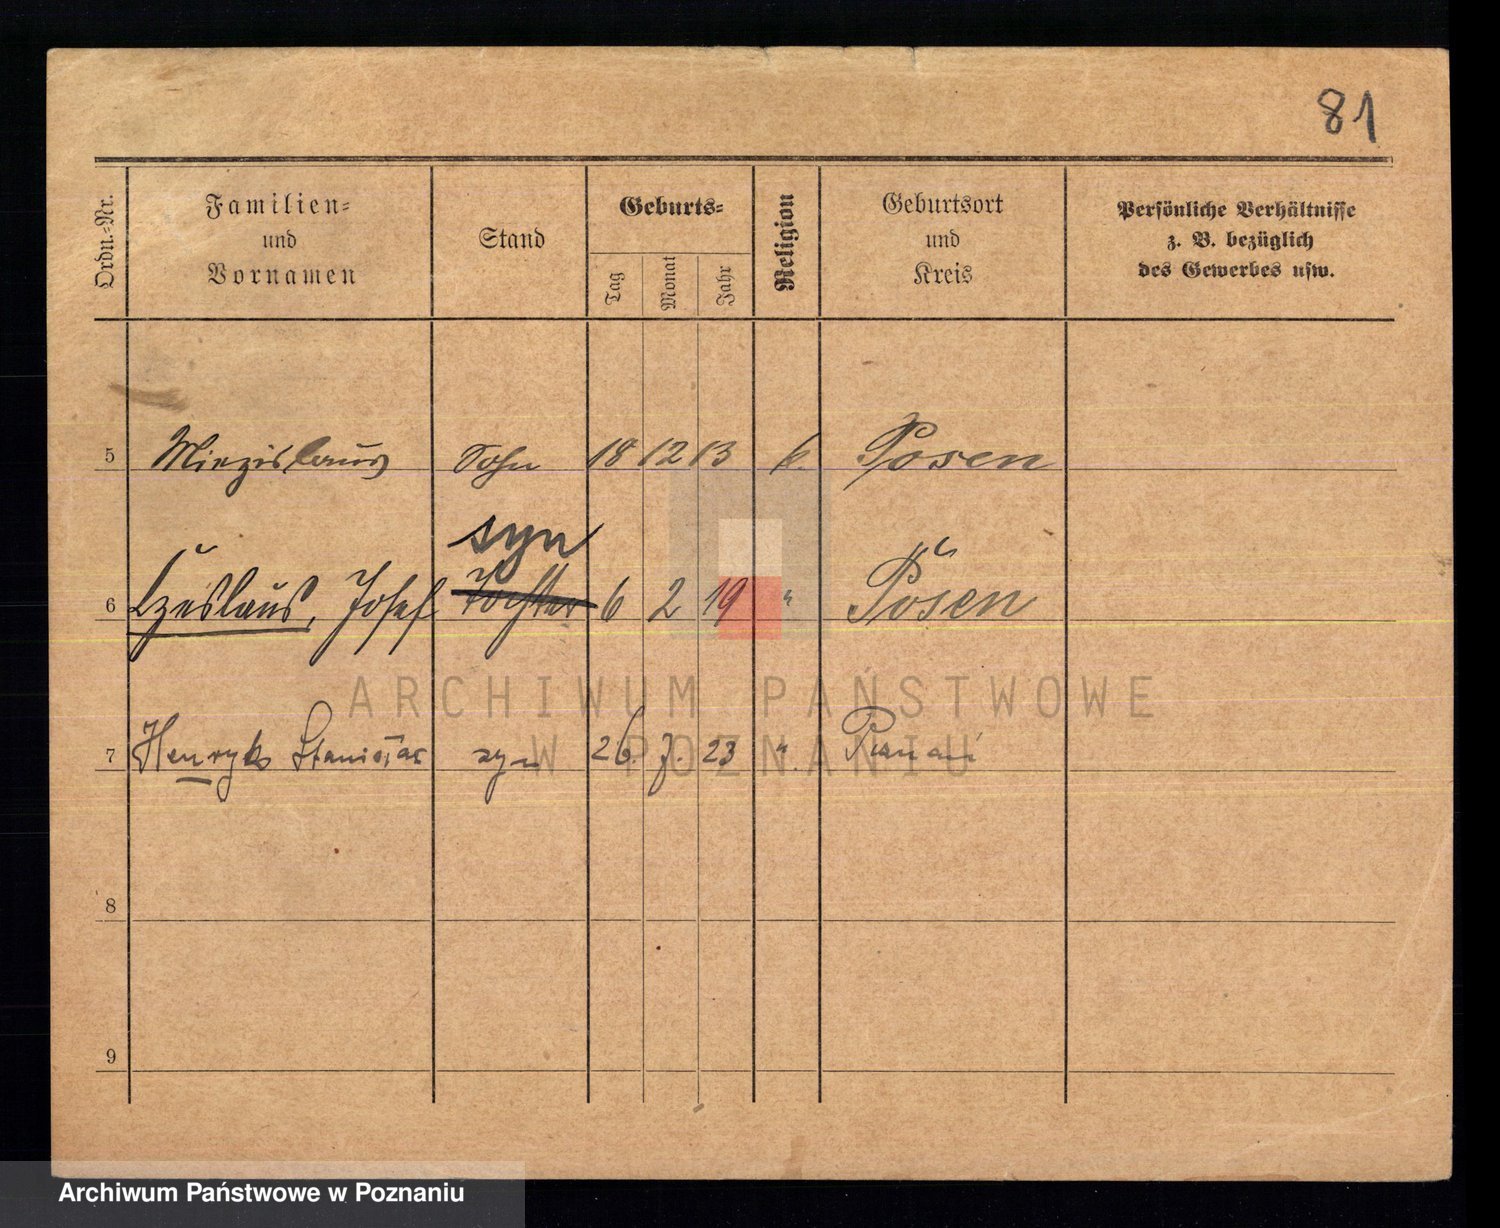 81
Ordn.-Nr.
Familien-
und
Vornamen
Stand
Geburts-
Tag
Monat
Jahr
Religion
Geburtsort
und
Kreis
Persönliche Verhältnisse
z. B. bezüglich
des Gewerbes usw.
5 Miezislaus Sohn 18 12 13 k. Posen
syn
6 Czeslaus, Josef Tochter 6 2 19 " Posen
ARCHIWUM PAŃSTWOWE
W POZNANIU
7 Henryk Stanisław syn 26. 7. 23 " Poznań
8
9
Archiwum Państwowe w Poznaniu